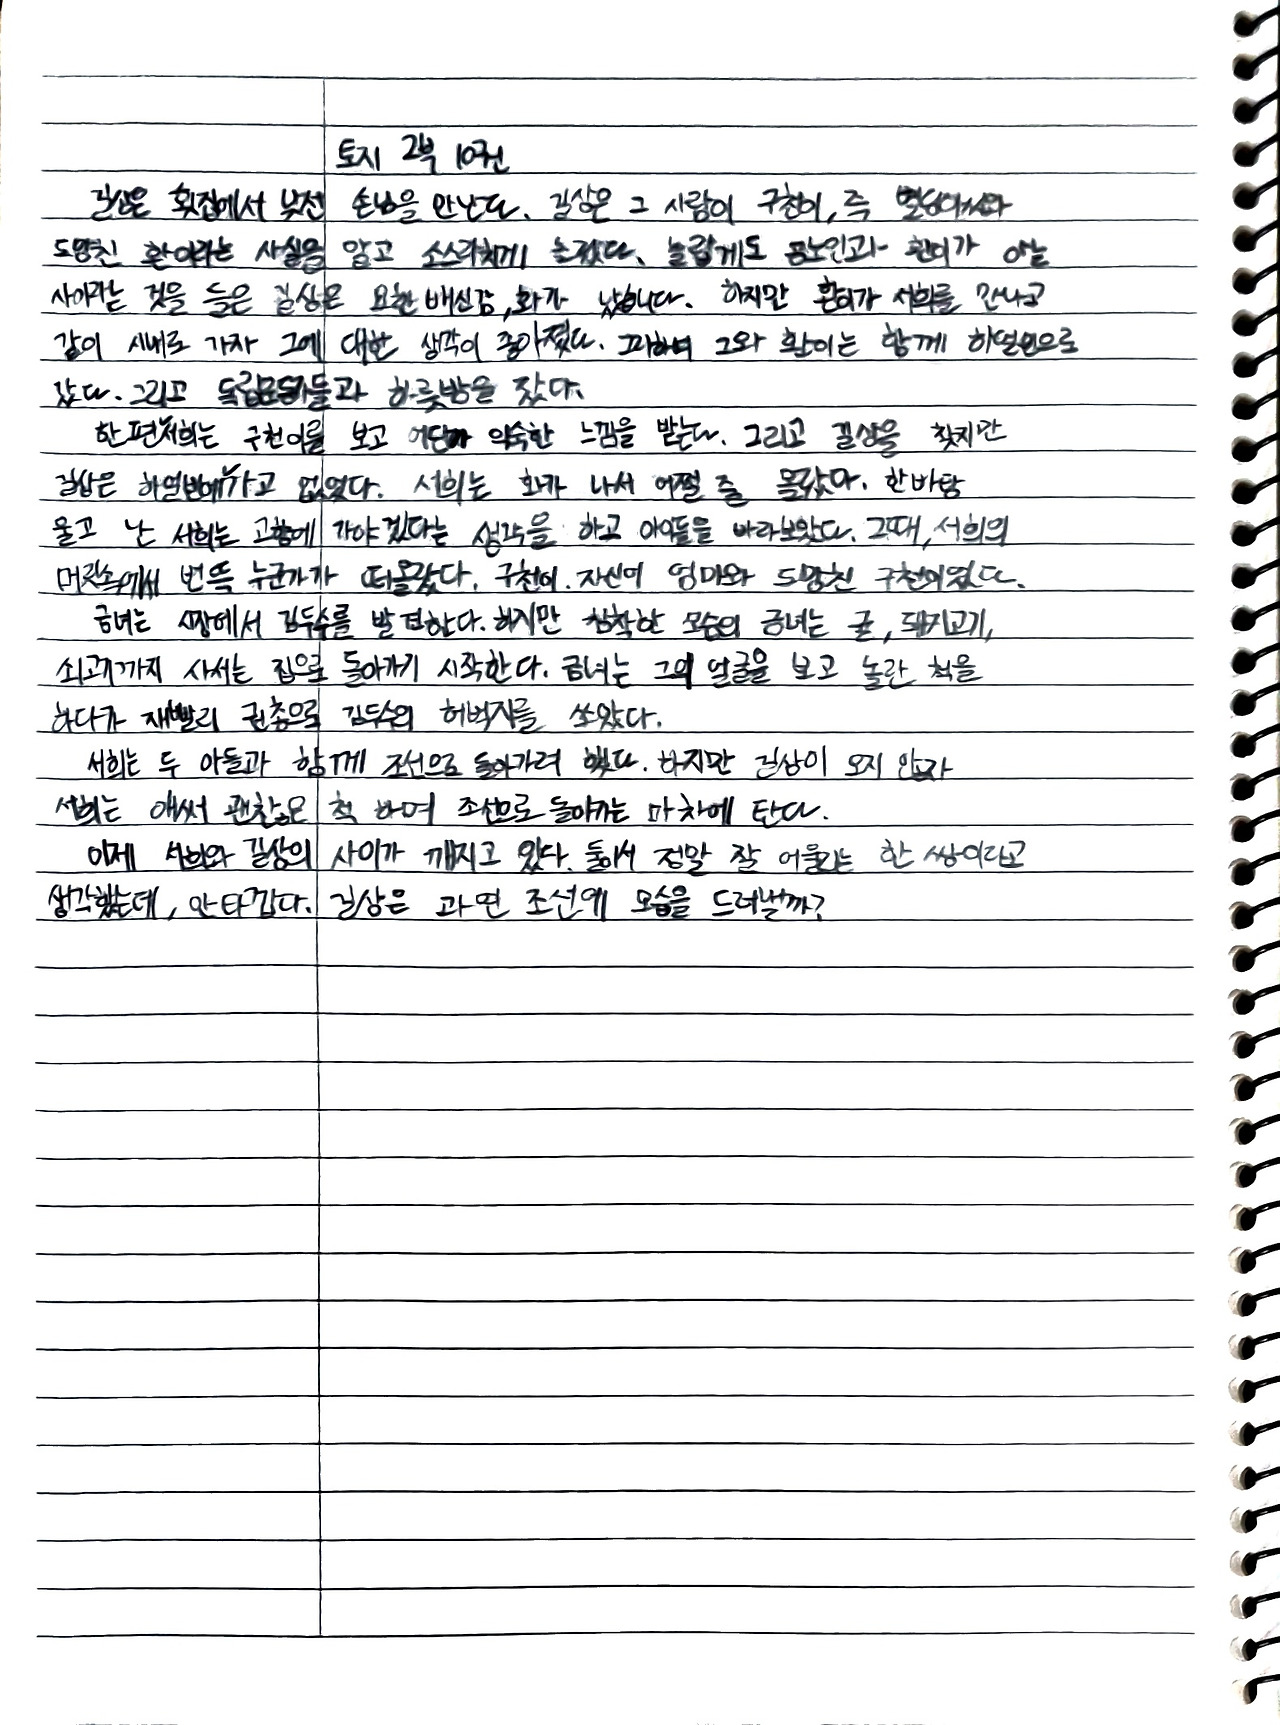 토지 2부 10권
길상은 횟집에서 낯선 손님을 만난다. 길상은 그 사람이 구천이, 즉 별당아씨와
도망친 환이라는 사실을 알고 소스라치게 놀랐다. 놀랍게도 공노인과 환이가 아는
사이라는 것을 들은 길상은 묘한 배신감, 화가 났습니다. 하지만 환이가 서희를 만나고
같이 시내로 가자 그에 대한 생각이 좋아졌다. 그리하여 그와 환이는 함께 하얼빈으로
갔다. 그리고 독립운동가들과 하룻밤을 잤다.
한편 서희는 구천이를 보고 어딘가 익숙한 느낌을 받는다. 그리고 길상을 찾지만
길상은 하얼빈에 가고 없었다. 서희는 화가 나서 어쩔 줄 몰랐다. 한바탕
울고 난 서희는 고향에 가야겠다는 생각을 하고 아이들을 바라보았다. 그때, 서희의
머릿속에서 번뜩 누군가가 떠올랐다. 구천이. 자신의 엄마와 도망친 구천이였다.
금녀는 시장에서 김두수를 발견한다. 하지만 침착한 모습의 금녀는 귤, 돼지고기,
쇠고기까지 사서는 집으로 돌아가기 시작한다. 금녀는 그의 얼굴을 보고 놀란 척을
하다가 재빨리 권총으로 김두수의 허벅지를 쏘았다.
서희는 두 아들과 함께 조선으로 돌아가려 했다. 하지만 길상이 오지 않자
서희는 애써 괜찮은 척 하며 조선으로 돌아가는 마차에 탄다.
이제 서희와 길상의 사이가 깨지고 있다. 둘이서 정말 잘 어울리는 한 쌍이라고
생각했는데, 안타깝다. 길상은 과연 조선에 모습을 드러낼까?